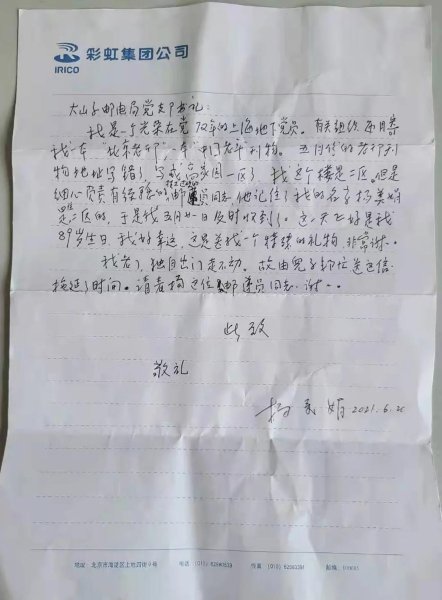 彩虹集团公司
IRICO
大山子邮电局党支部书记:
我是一个光荣在党72年的上海地下党员。有关组织每月寄
我一本"北京老干部"一本"中国老年"刊物。五月份的老年刊
物地址写错了,写成高家园一区了,我这个楼是二区。但是
细心负责有经验的邮递员同志,他记住了我的名字杨美娟
是二区的,于是我五月廿一日及时收到了。这一天正好是我
89岁生日,我好幸运,这是送我一个特殊的礼物,非常谢..
我老了,独自出门走不动。故由儿子帮忙送这信
拖延了时间。请表扬这位邮递员同志,谢..
此致
敬礼
杨美娟 2021.6.20
地址:北京市海淀区上地四街9号 电话:(010) 传真:(010) 邮编: